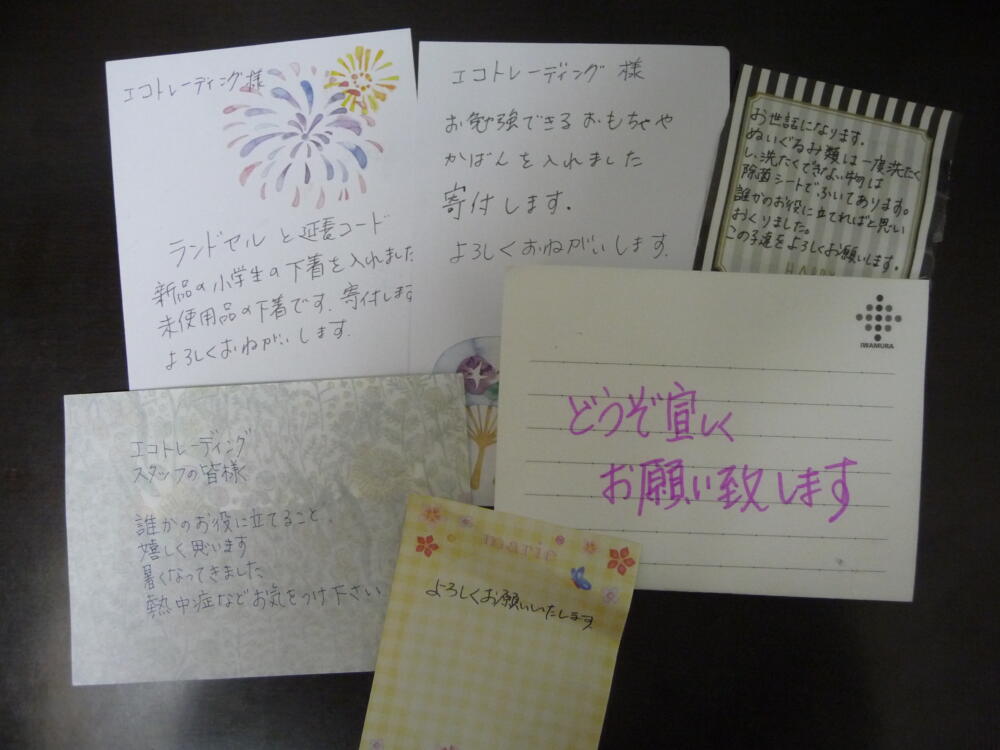 エコトレーディング様
ランドセルと延長コード
新品の小学生の下着を入れました
未使用品の下着です。寄付します
よろしくおねがいします。
エコトレーディング 様
お勉強できるおもちゃや
かばんを入れました
寄付します。
よろしくおねがいします。
お世話になります。
ぬいぐるみ類は一度洗たく
し、洗たくできない物は
除菌シートでふいてあります。
誰かのお役に立てればと思い
おくりました。
この子達をよろしくお願いします。
IWAMURA
どうぞ宜しく
お願い致します
エコトレーディング
スタッフの皆様
誰かのお役に立てること、
嬉しく思います
暑くなってきました
熱中症などお気をつけ下さい
marie
よろしくお願いいたします。